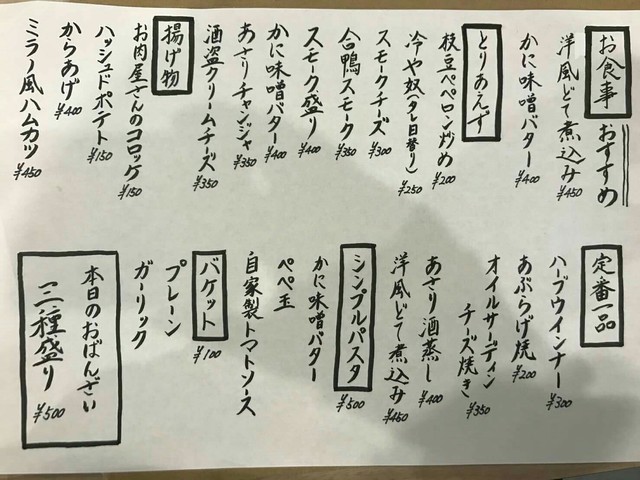 お食事 おすすめ
洋風どて煮込み ¥450
かに味噌バター ¥400
とりあえず
枝豆ペペロン炒め ¥200
冷や奴(タレ日替り) ¥250
スモークチーズ ¥300
合鴨スモーク ¥350
スモーク盛り ¥400
かに味噌バター ¥400
あさりチャンジャ ¥350
酒盗クリームチーズ ¥350
揚げ物
お肉屋さんのコロッケ ¥150
ハッシュドポテト ¥150
からあげ ¥400
ミラノ風ハムカツ ¥450
定番一品
ハーブウインナー ¥300
あぶらげ焼 ¥200
オイルサーディン
チーズ焼き ¥350
あさり酒蒸し ¥400
洋風どて煮込み ¥450
シンプルパスタ ¥500
かに味噌バター
ペペ玉
自家製トマトソース
バケット ¥100
プレーン
ガーリック
本日のおばんざい
三種盛り ¥500